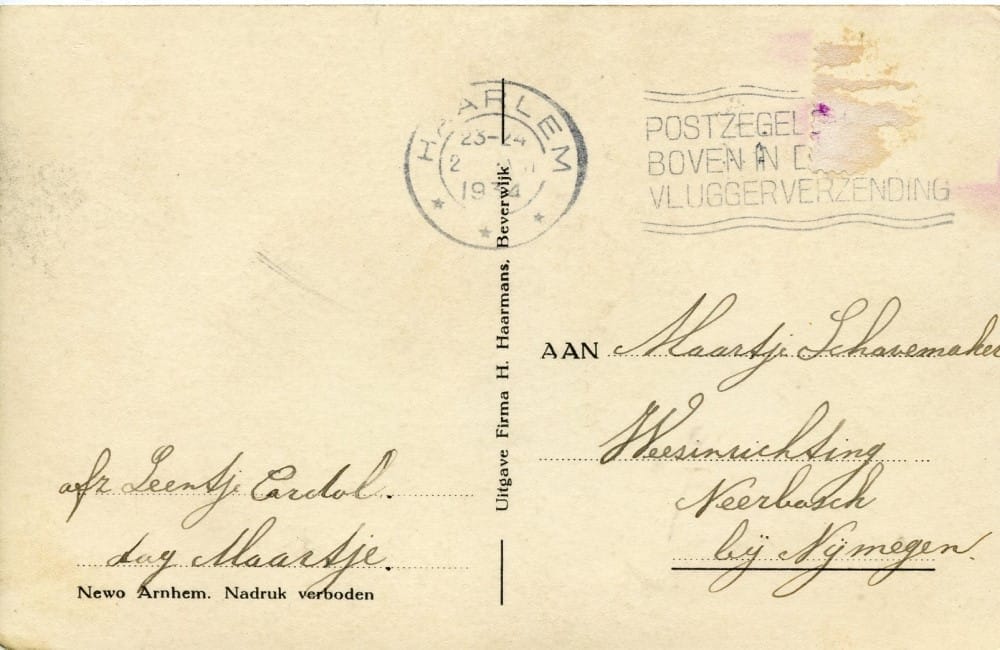 HAARLEM
23-24
2
1934
POSTZEGEL
BOVEN IN D
VLUGGER VERZENDING
Uitgave Firma H. Haarmans, Beverwijk
AAN Maartje Schavemaker
Weesinrichting
Neerbosch
bij Nijmegen.
afz Leentje Cardol.
dag Maartje.
Newo Arnhem. Nadruk verboden